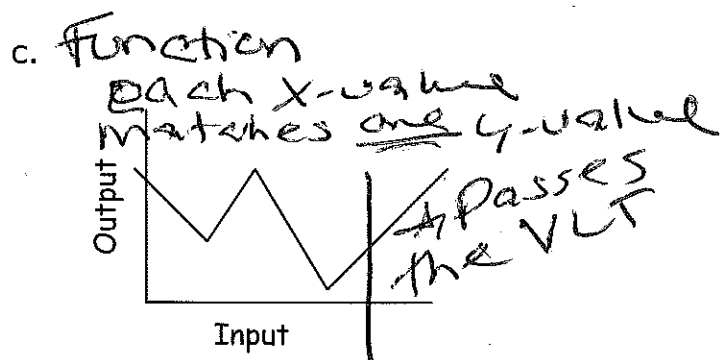 c. Function
each x-value
matches one y-value
Output
& Passes
the VLT
Input